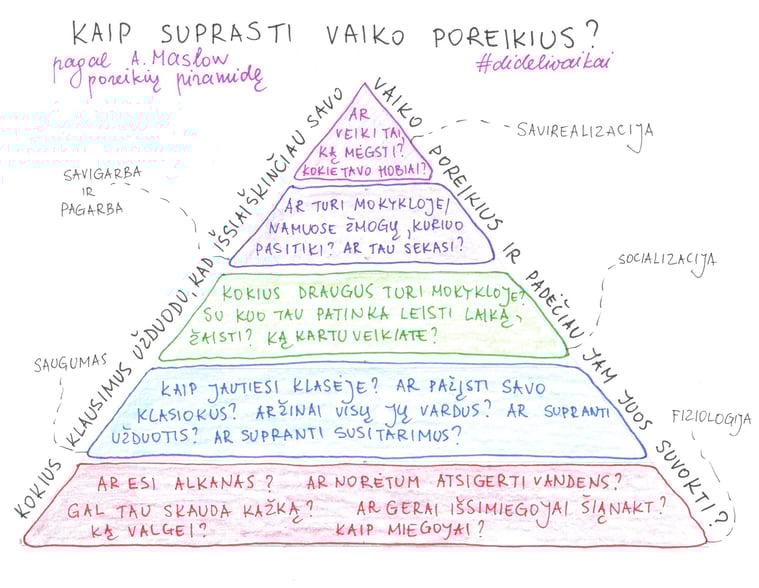 KAIP SUPRASTI VAIKO POREIKIUS?
pagal A. Maslow
poreikių piramidę
#didelivaikai
KOKIUS KLAUSIMUS UŽDUODU, KAD IŠSIAIŠKINČIAU SAVO
VAIKO POREIKIUS IR PADĖČIAU JAM JUOS SUVOKTI?
AR
VEIKI TAI,
KĄ MĖGSTI?
KOKIE TAVO HOBIAI?
SAVIREALIZACIJA
SAVIGARBA
IR
PAGARBA
AR TURI MOKYKLOJE/
NAMUOSE ŽMOGŲ, KURIUO
PASITIKI? AR TAU SEKASI?
SOCIALIZACIJA
KOKIUS DRAUGUS TURI MOKYKLOJE?
SU KUO TAU PATINKA LEISTI LAIKĄ,
ŽAISTI? KĄ KARTU VEIKIATE?
SAUGUMAS
KAIP JAUTIESI KLASĖJE? AR PAŽĮSTI SAVO
KLASIOKUS? AR ŽINAI VISŲ JŲ VARDUS? AR SUPRANTI
UŽDUOTIS? AR SUPRANTI SUSITARIMUS?
FIZIOLOGIJA
AR ESI ALKANAS? AR NORĖTUM ATSIGERTI VANDENS?
GAL TAU SKAUDA KAŽKĄ? AR GERAI IŠSIMIEGOJAI ŠIĄNAKT?
KĄ VALGEI? KAIP MIEGOJAI?